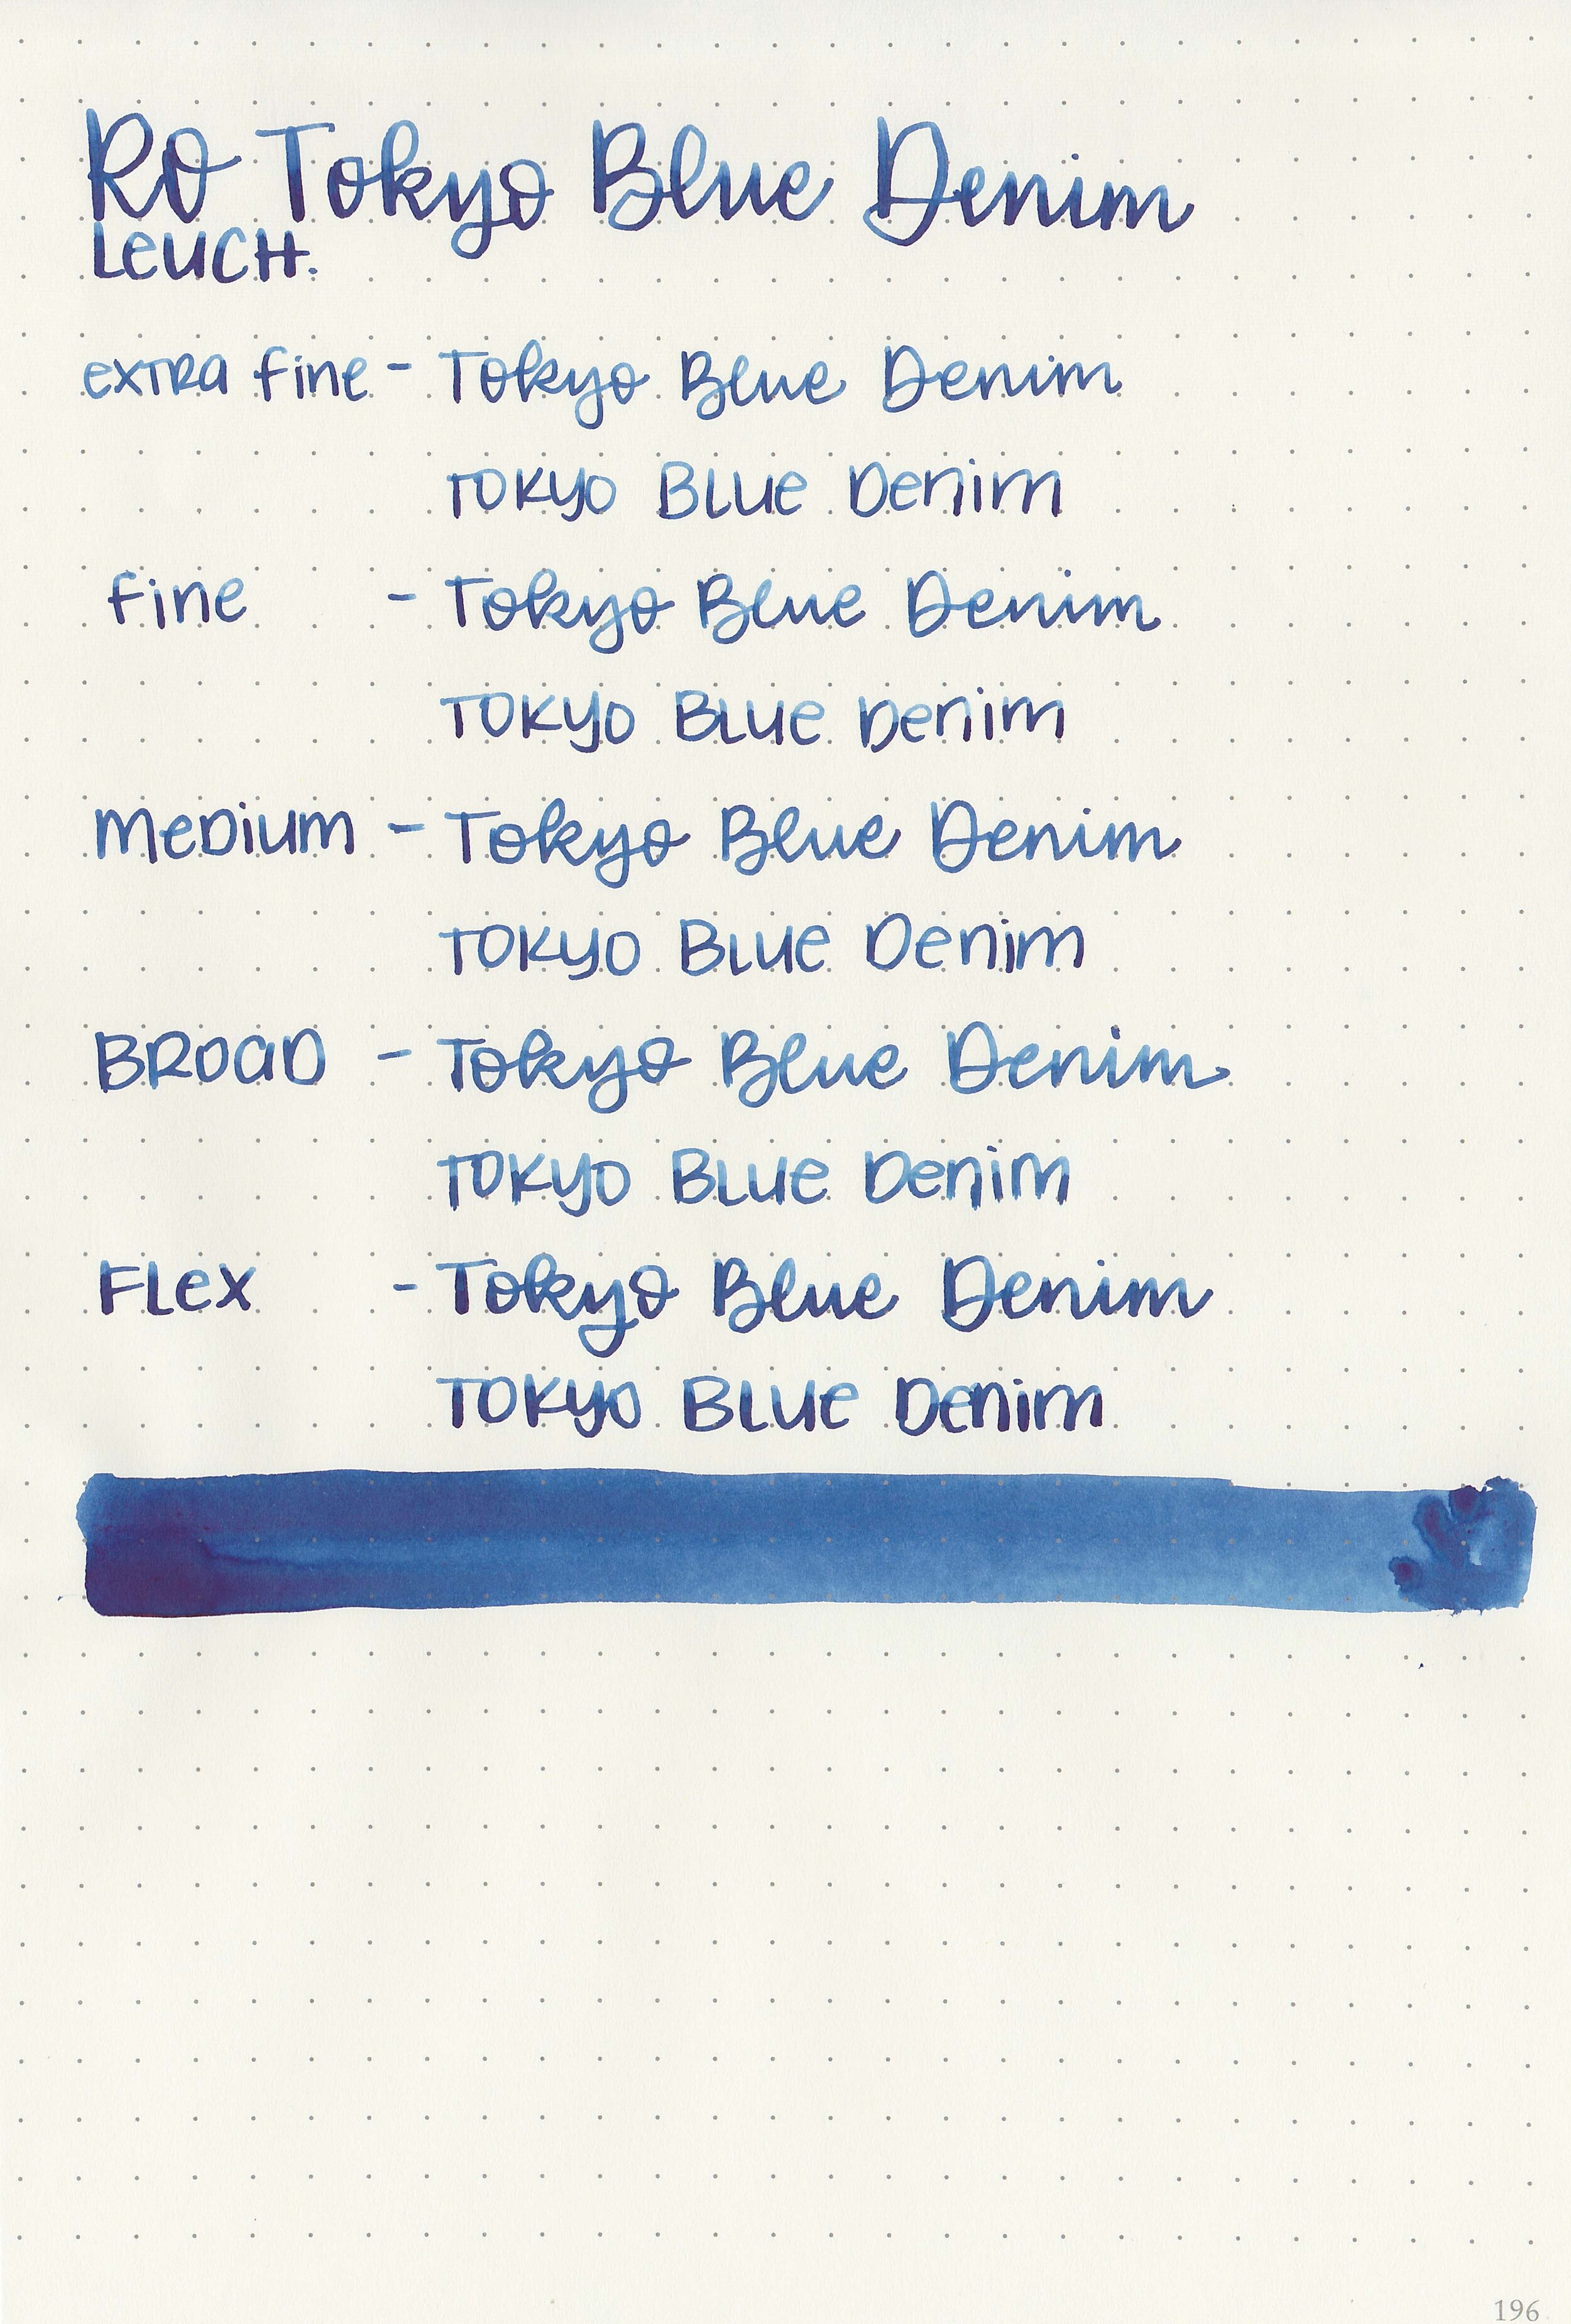 RO Tokyo Blue Denim
Leuch.
extra fine - Tokyo Blue Denim
Tokyo Blue Denim
fine - Tokyo Blue Denim
Tokyo Blue Denim
Medium - Tokyo Blue Denim
Tokyo Blue Denim
Broad - Tokyo Blue Denim
Tokyo Blue Denim
Flex - Tokyo Blue Denim
Tokyo Blue Denim
196